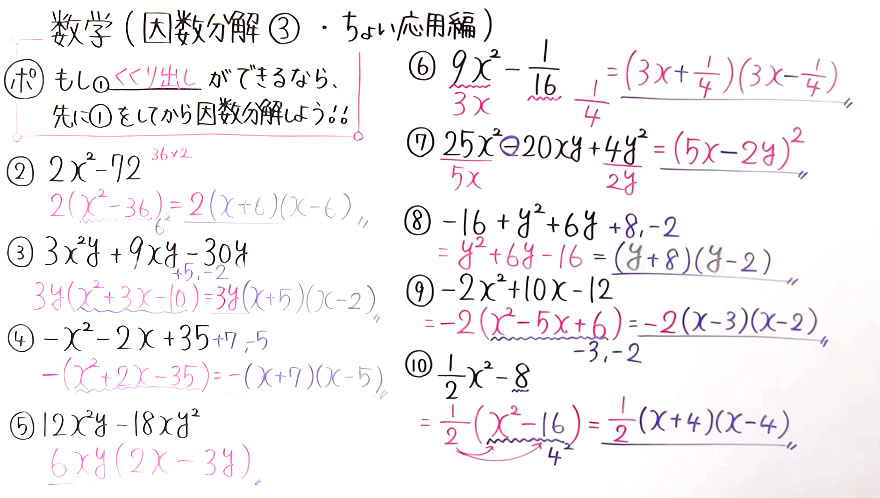 数学(因数分解③・ちょい応用編)
ポ もし①くくり出しができるなら、
先に①をしてから因数分解しよう!!
② 2x²-72 36×2
2(x²-36)=2(x+6)(x-6)
6²
③ 3x²y+9xy-30y
+5,-2
3y(x²+3x-10)=3y(x+5)(x-2)
④ -x²-2x+35 +7,-5
-(x²+2x-35)=-(x+7)(x-5)
⑤ 12x²y-18xy²
6xy(2x-3y)
⑥ 9x²-1/16 =(3x+1/4)(3x-1/4)
3x 1/4
⑦ 25x²-20xy+4y²=(5x-2y)²
5x 2y
⑧ -16+y²+6y +8,-2
=y²+6y-16=(y+8)(y-2)
⑨ -2x²+10x-12
=-2(x²-5x+6)=-2(x-3)(x-2)
-3,-2
⑩ 1/2x²-8
=1/2(x²-16)=1/2(x+4)(x-4)
4²